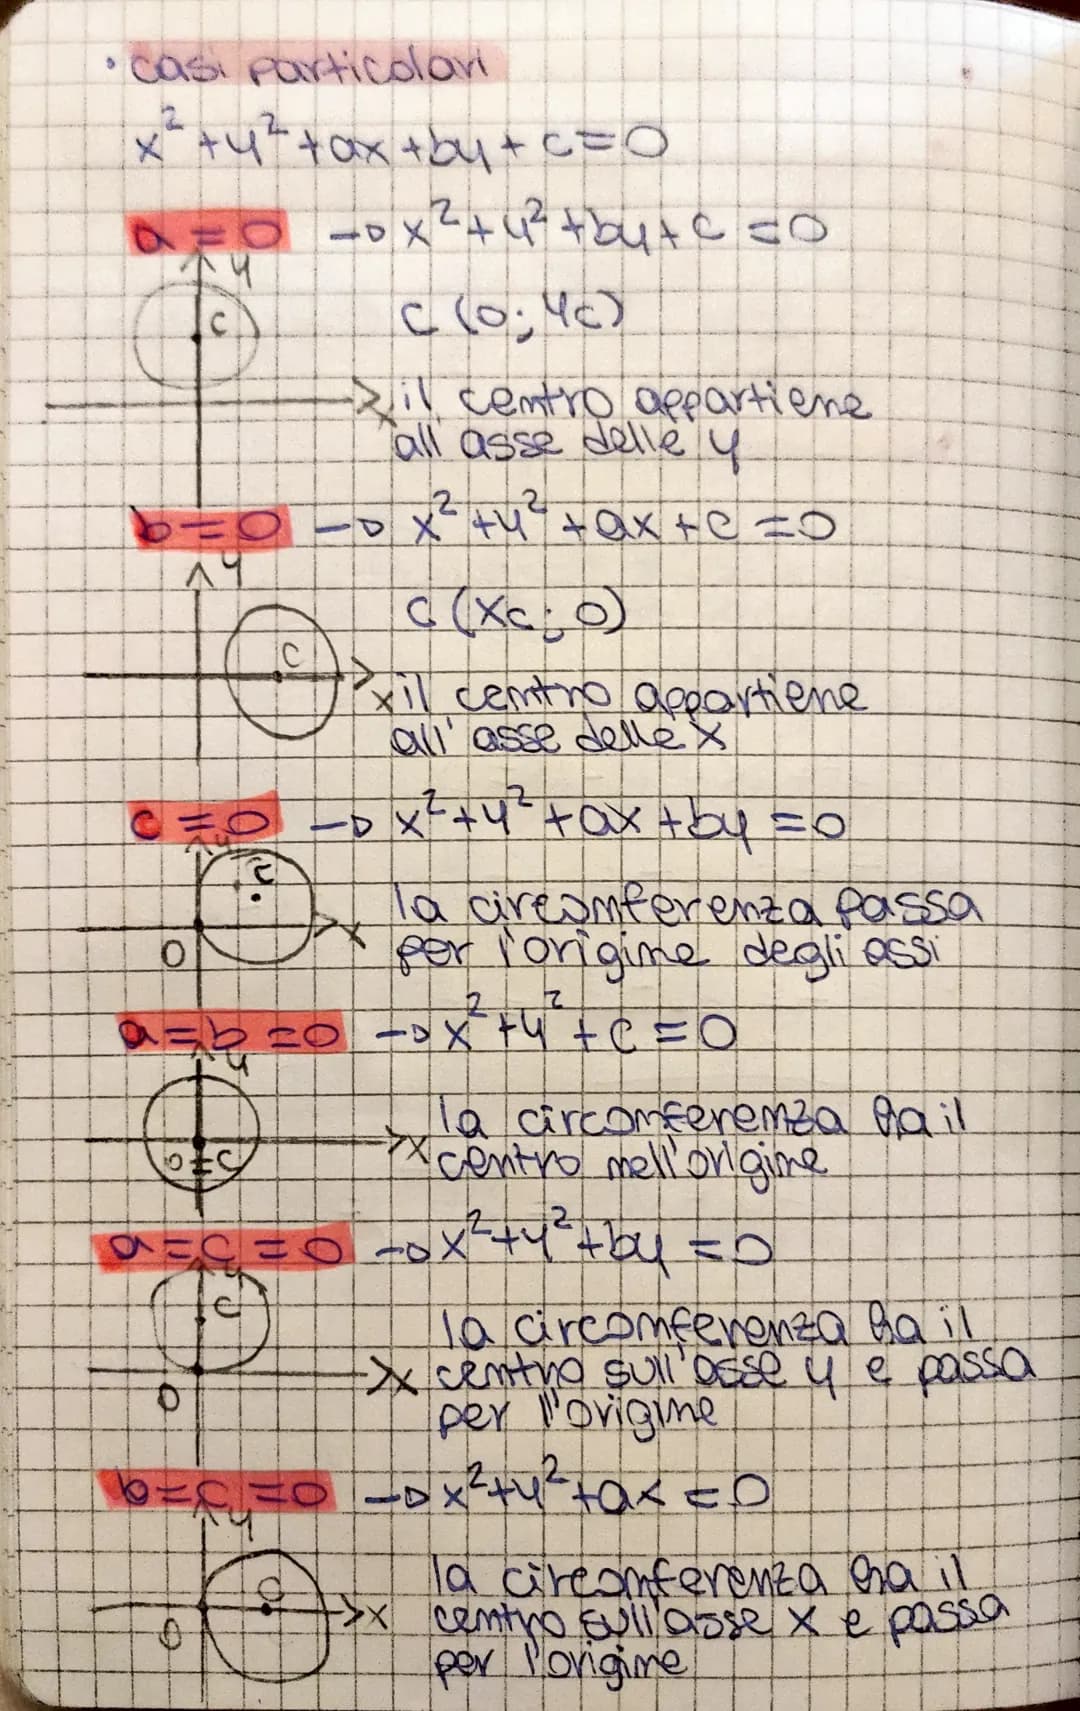 • casi particolari
x² + y² + ax + by + c = 0
a = 0 → x² + y² + by + c = 0
y
C
C (0; yc)
x
il centro appartiene
all'asse delle y
b = 0 → x² + y² + ax + c = 0
y
C (xc; 0)
C
x
il centro appartiene
all'asse delle x
c = 0 → x² + y² + ax + by = 0
y
C
la circonferenza passa
x
O
per l'origine degli assi
a = b = 0 → x² + y² + c = 0
y
la circonferenza ha il
x
O = C
centro nell'origine
a = c = 0 → x² + y² + by = 0
y
C
la circonferenza ha il
x
centro sull'asse y e passa
O
per l'origine
b = c = 0 → x² + y² + ax = 0
y
la circonferenza ha il
C
x
centro sull'asse x e passa
O
per l'origine